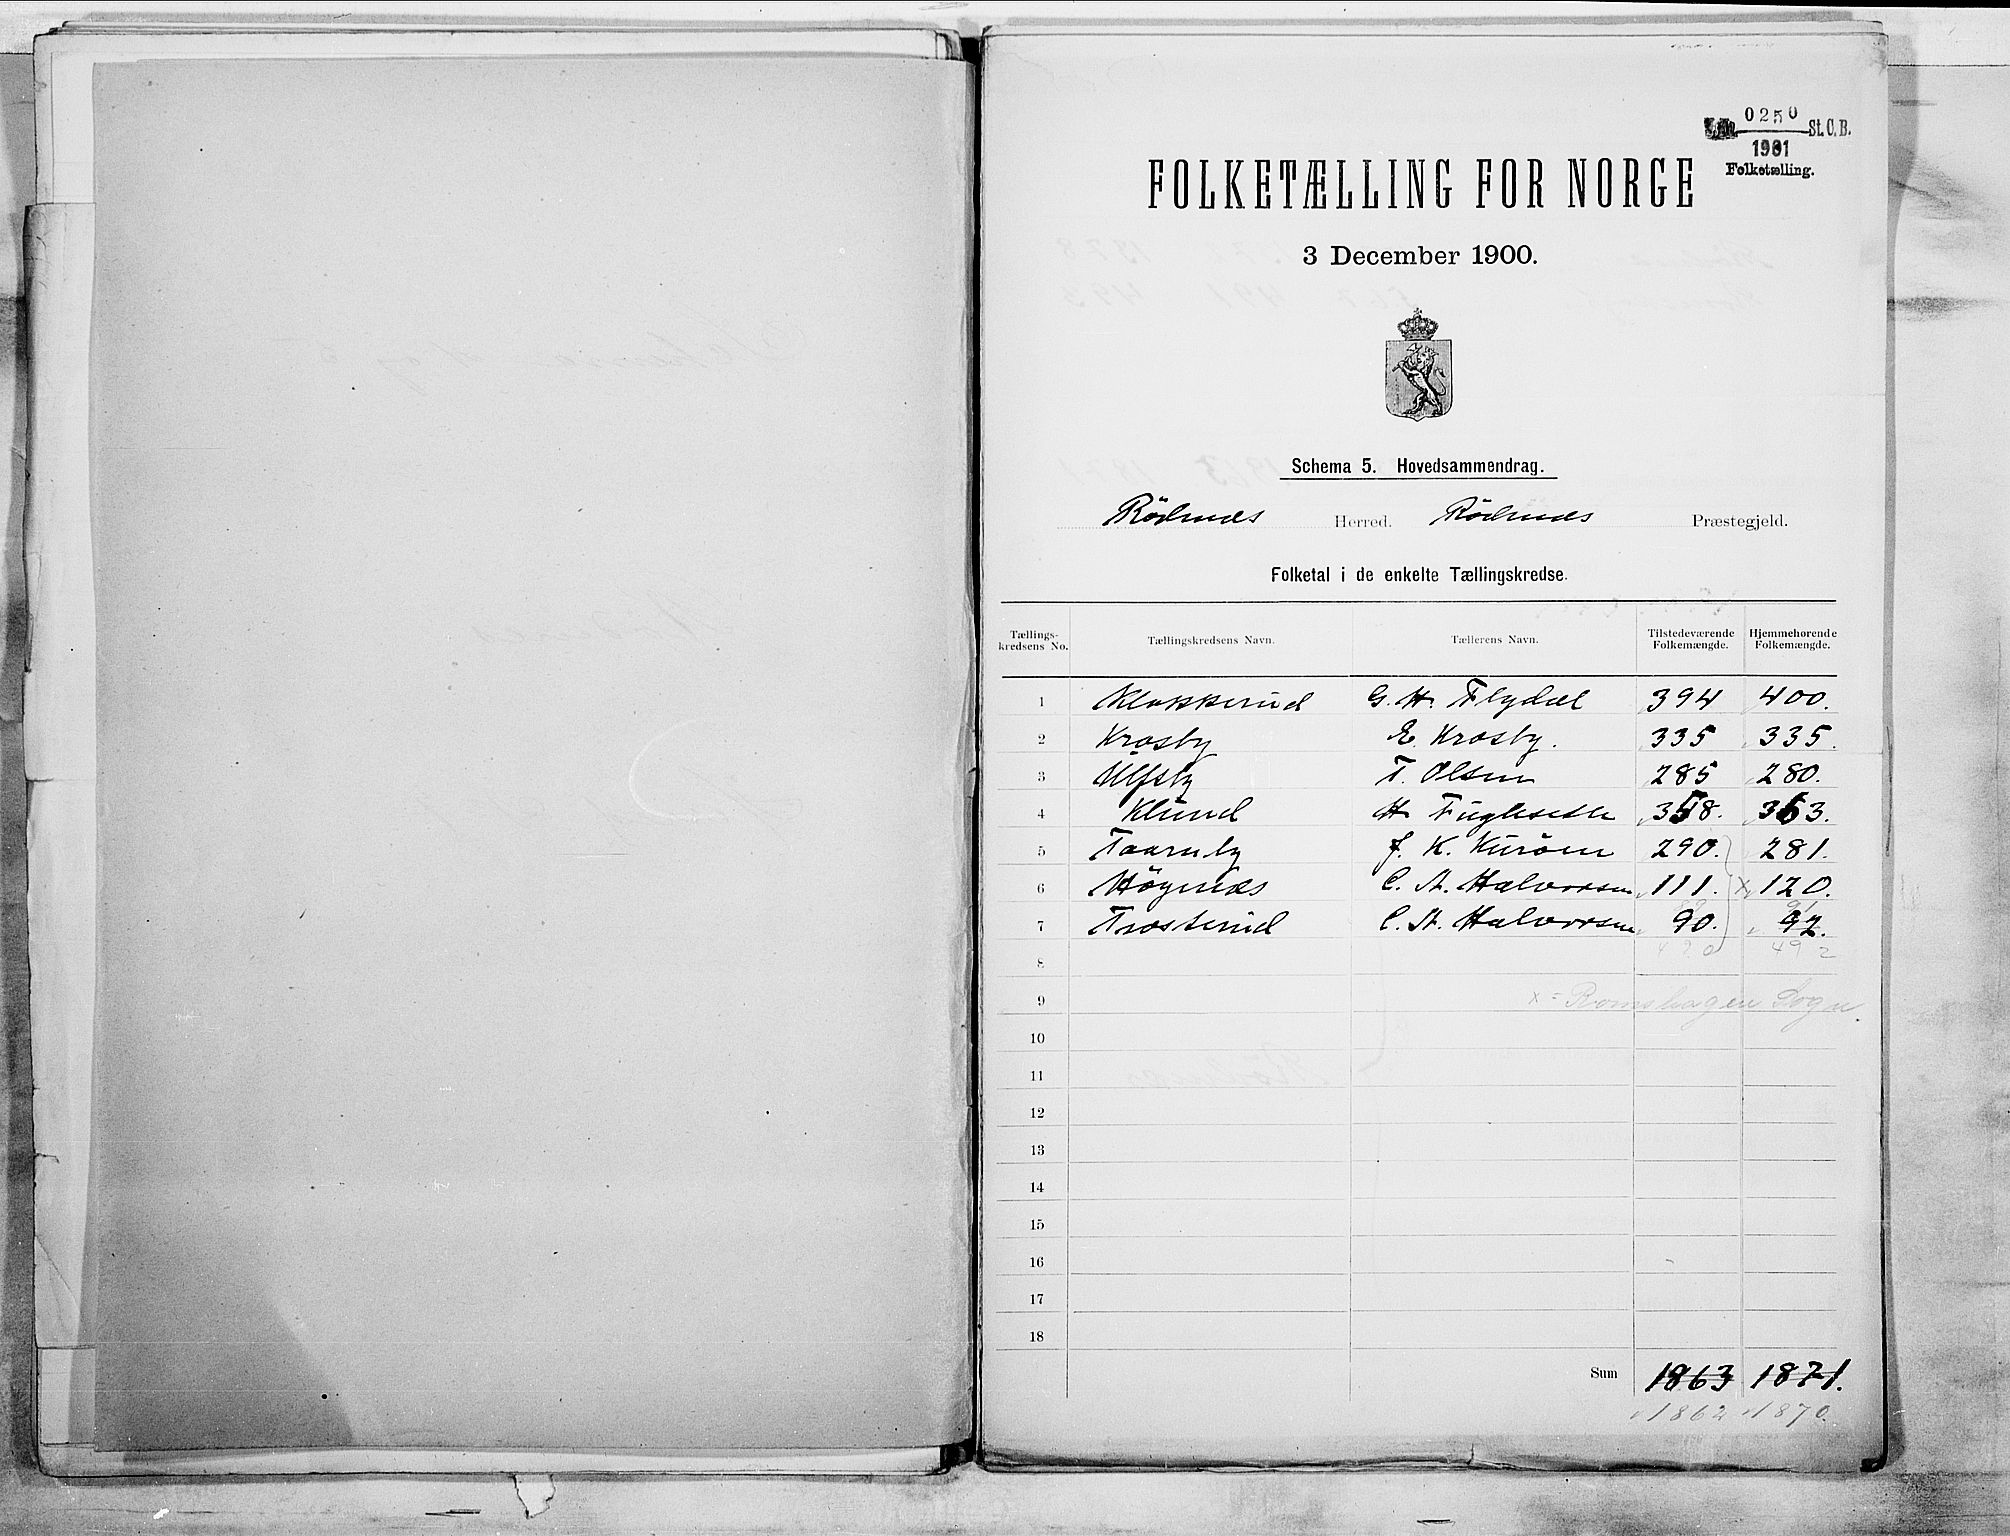 0250
St. C. B.
1901
Folketælling.
FOLKETÆLLING FOR NORGE
3 December 1900.
Schema 5. Hovedsammendrag.
Rödenæs Herred. Rödenæs Præstegjeld.
Folketal i de enkelte Tællingskredse.
Tællings-kredsens No. Tællingskredsens Navn. Tællerens Navn. Tilstedeværende Folkemængde. Hjemmehørende Folkemængde.
1 Klokkerud G. H. Flydal 394 400.
2 Krosby E. Krosby. 335 335.
3 Ulfsby T. Olsen 285 280.
4 Klund H. Fugleseth 358. 363.
5 Taarnby J. K. Kuröen 290. 281.
6 Högnæs C. A. Halvorsen 111. x 120.
89 91
7 Trosterud C. A. Halvorsen 90. 92.
8 490 492
9 x = Romshagen Sogn.
10
11
12
13
14
15
16
17
18
Sum 1863 1871.
1862 1870.